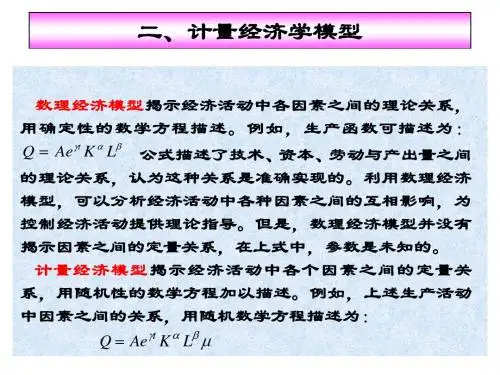 二、计量经济学模型
数理经济模型揭示经济活动中各因素之间的理论关系，
用确定性的数学方程描述。例如，生产函数可描述为：
Q = Ae^{γt} K^α L^β 公式描述了技术、资本、劳动与产出量之间
的理论关系，认为这种关系是准确实现的。利用数理经济
模型，可以分析经济活动中各种因素之间的互相影响，为
控制经济活动提供理论指导。但是，数理经济模型并没有
揭示因素之间的定量关系，在上式中，参数是未知的。
计量经济模型揭示经济活动中各个因素之间的定量关
系，用随机性的数学方程加以描述。例如，上述生产活动
中因素之间的关系，用随机数学方程描述为：
Q = Ae^{γt} K^α L^β μ